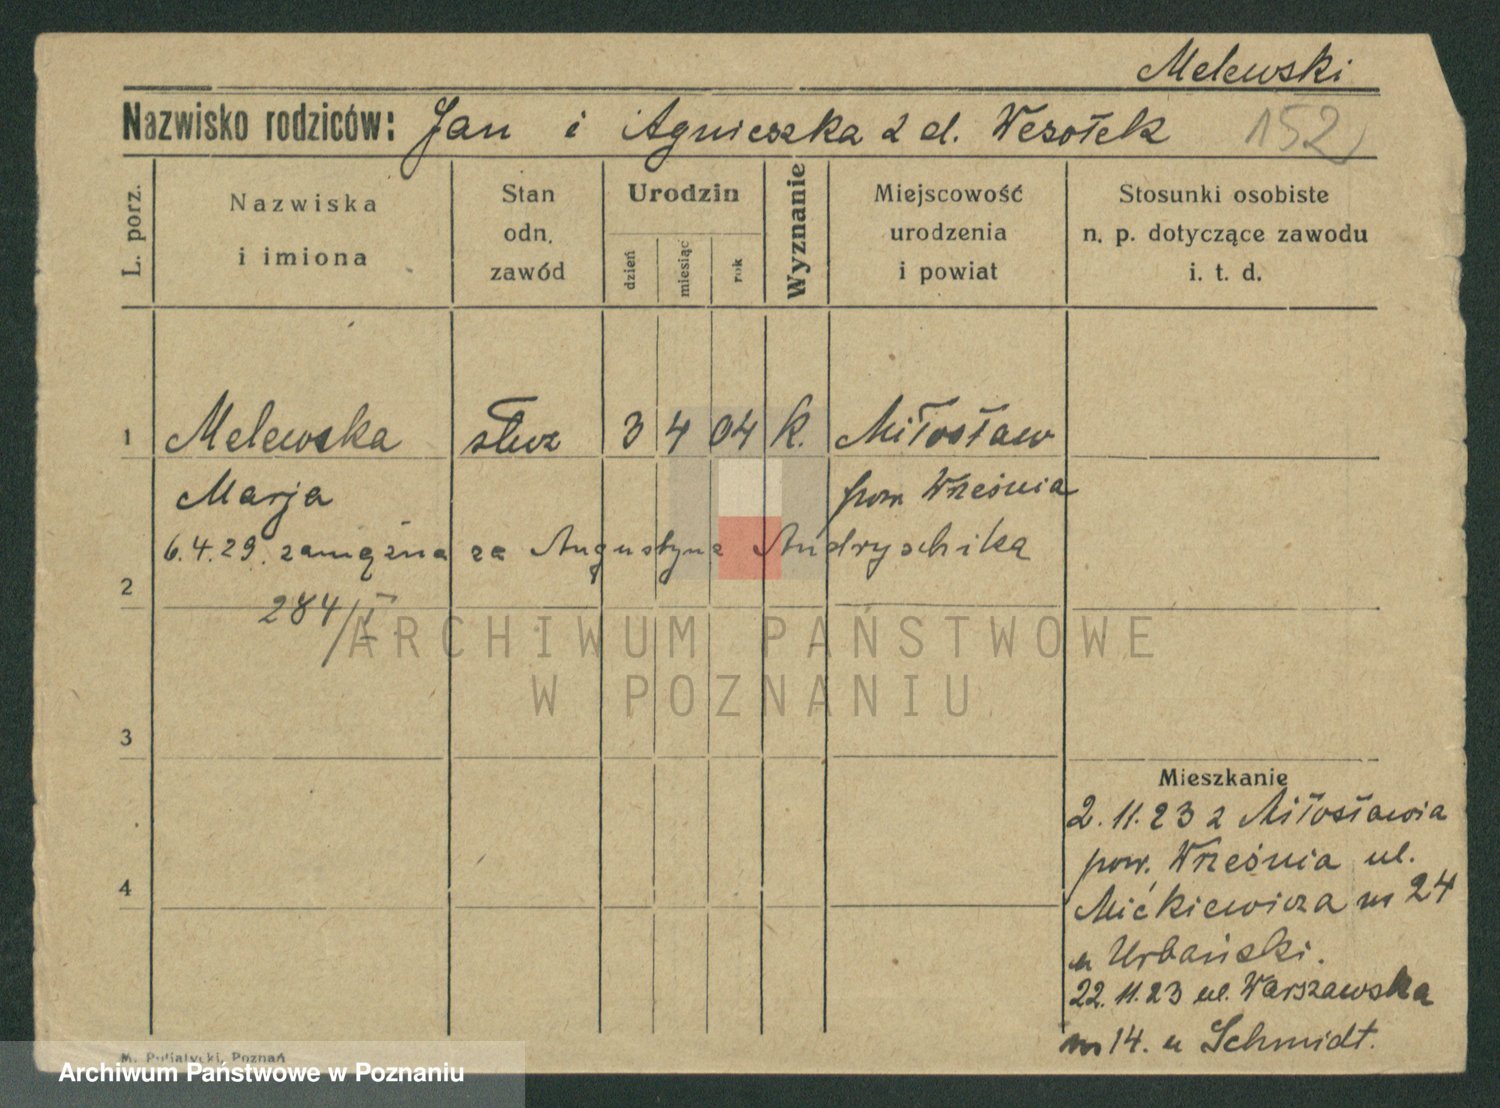 Melewski
Nazwisko rodziców: Jan i Agnieszka z d. Wesołek 152
L. porz.
Nazwiska
i imiona
Stan
odn.
zawód
Urodzin
dzień
miesiąc
rok
Wyznanie
Miejscowość
urodzenia
i powiat
Stosunki osobiste
n. p. dotyczące zawodu
i. t. d.
1 Melewska służ 3 4 04 k. Miłosław
Marja pow Września
6.4.29. zamężna za Augustyna Andryschika
2
284/I
ARCHIWUM PAŃSTWOWE
W POZNANIU
3
Mieszkanie
2.11.23 z Miłosławia
pow. Września ul.
4
Mickiewicza nr 24
u Urbański.
22.11.23 ul. Warszawska
nr 14. u Schmidt.
M. Putiatycki, Poznań
Archiwum Państwowe w Poznaniu